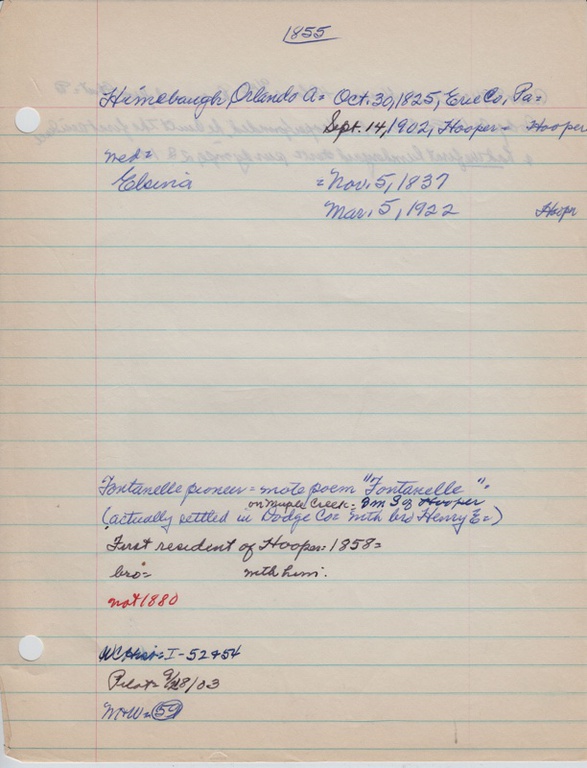 1855
Himebaugh, Orlando A= Oct. 30, 1825, Erie Co., Pa=
Sept. 14, 1902, Hooper= Hooper
Wed=
Elsina = Nov. 5, 1837
Mar. 5, 1922 Hoopr
Fontanelle pioneer= wrote poem "Fontanelle".
on Maple Creek= 3m S of Hooper
(actually settled in Dodge Co= with bro Henry E=)
First resident of Hooper= 1858=
bro= with him.
not 1880
WCHist= I-52+54
Pilot= 9/28/03
M+W= 59